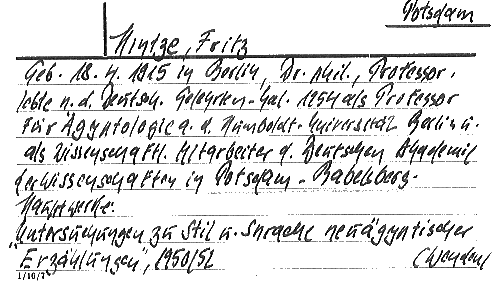 Potsdam
Hintze, Fritz
Geb. 18. 4. 1915 in Berlin, Dr. phil., Professor.
lebte n. d. Deutsch. Gelehrten-Kal. 1954 als Professor
für Ägyptologie a. d. Humboldt-Universität Berlin u.
als Wissenschaftl. Mitarbeiter d. Deutschen Akademie
der Wissenschaften in Potsdam-Babelsberg.
Hauptwerke:
"Untersuchungen zu Stil u. Sprache neuägyptischer
Erzählungen", 1950/52